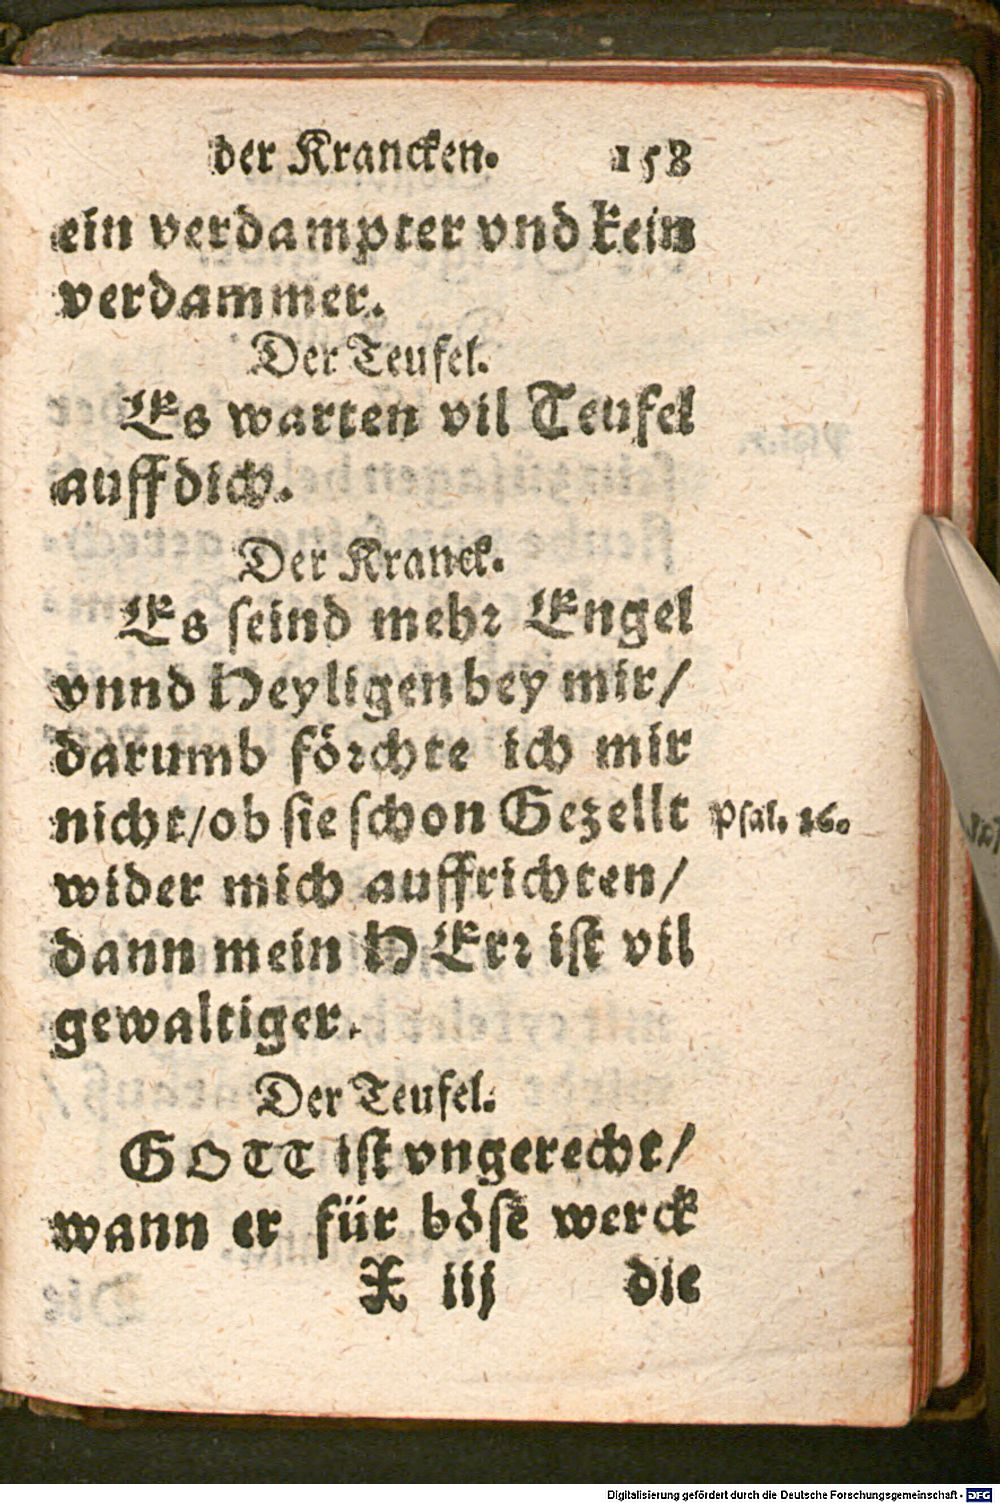 der Krancken. 158
ein verdampter vnd kein
verdammer.
Der Teufel.
Es warten vil Teufel
auff dich.
Der Kranck.
Es seind mehr Engel
vnnd Heyligen bey mir/
darumb förchte ich mir
nicht/ob sie schon Gezellt
Psal. 26.
wider mich auffrichten/
dann mein HErr ist vil
gewaltiger.
Der Teufel.
GOTT ist vngerecht/
wann er für böse werck
X iij die
Digitalisierung gefördert durch die Deutsche Forschungsgemeinschaft - DFG